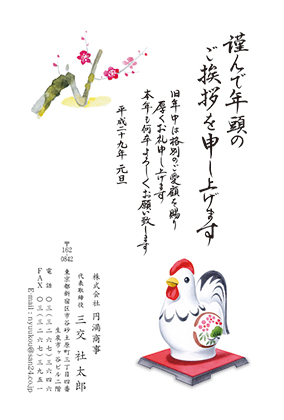 謹んで年頭の
ご挨拶を申し上げます
旧年中は格別のご愛顧を賜り
厚くお礼申し上げます
本年も何卒よろしくお願い致します
平成二十九年 元旦
〒162
0842
東京都新宿区市谷砂土原町三丁目四番
生泉市ヶ谷ビル二階
株式会社 円満商事
代表取締役 三交 社太郎
電話 〇三(三二六七)三六四六
FAX 〇三(三二六七)三九五一
E-mail : nyuukou@san24.co.jp